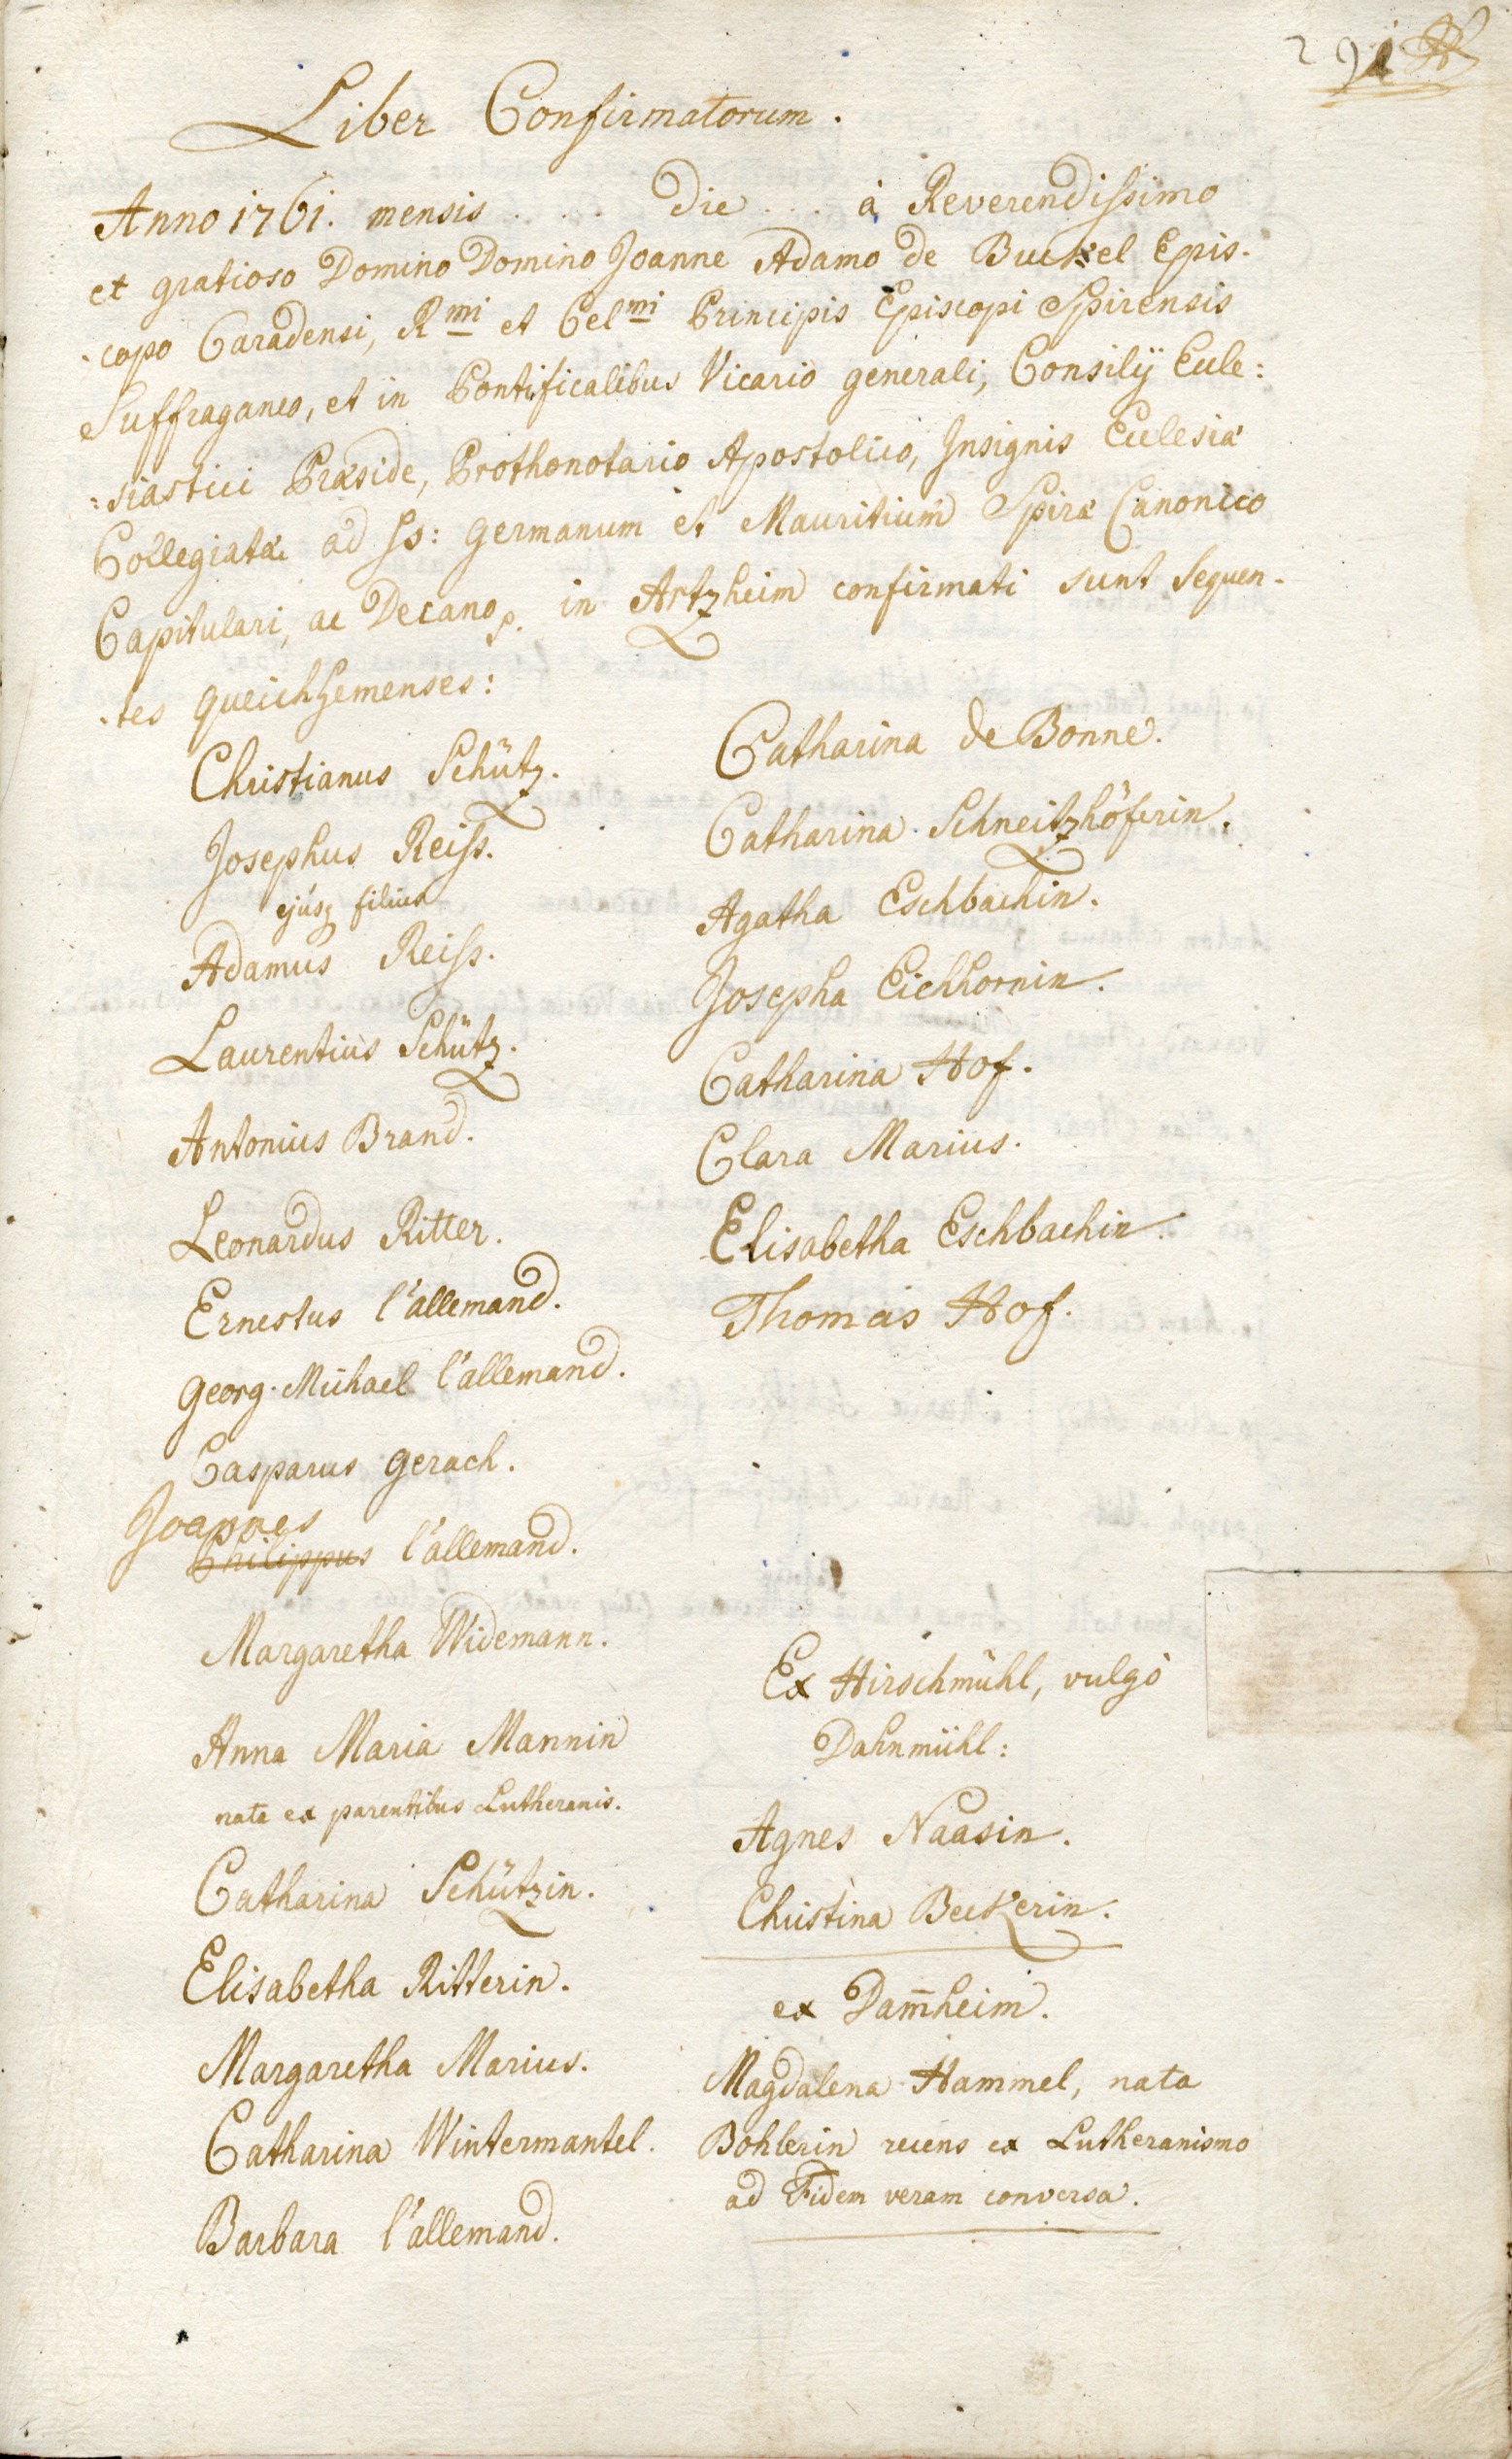 291
Liber Confirmatorum.
Anno 1761. mensis . . . Die . . . à Reverendissimo
et gratioso Domino Domino Joanne Adamo de Buckel Epis-
-copo Caradensi, Rmi et Celmi Principis Episcopi Spirensis
Suffraganeo, et in Pontificalibus Vicario generali, Consilÿ Eccle:
:siastici Præside, Prothonotario Apostolico, Insignis Ecclesiæ
Collegiatæ ad Ss: Germanum et Mauritium Spiræ Canonico
Capitulari, ac Decano p. in Artzheim confirmati sunt sequen-
-tes Queichhemenses:
Christianus Schütz.
Josephus Reiss.
ejusq filius
Adamus Reiss.
Laurentius Schütz.
Antonius Brand.
Leonardus Ritter.
Ernestus l'allemand.
Georg. Michael l'allemand.
Casparus Gerach.
Joannes
Philippus l'allemand.
Margaretha Widemann.
Anna Maria Mannin
nata ex parentibus Lutheranis.
Catharina Schützin.
Elisabetha Ritterin.
Margaretha Marius.
Catharina Wintermantel.
Barbara l'allemand.
Catharina de Bonne.
Catharina Schneitzhöferin.
Agatha Eschbachin.
Josepha Eichhornin.
Catharina Hof.
Clara Marius.
Elisabetha Eschbachin
Thomas Hof.
Ex Hirschmühl, vulgò
Dahnmühl:
Agnes Naasin.
Christina Beckerin.
ex Dam̄heim.
Magdalena Hammel, nata
Bohlerin recens ex Lutheranismo
ad Fidem veram conversa.